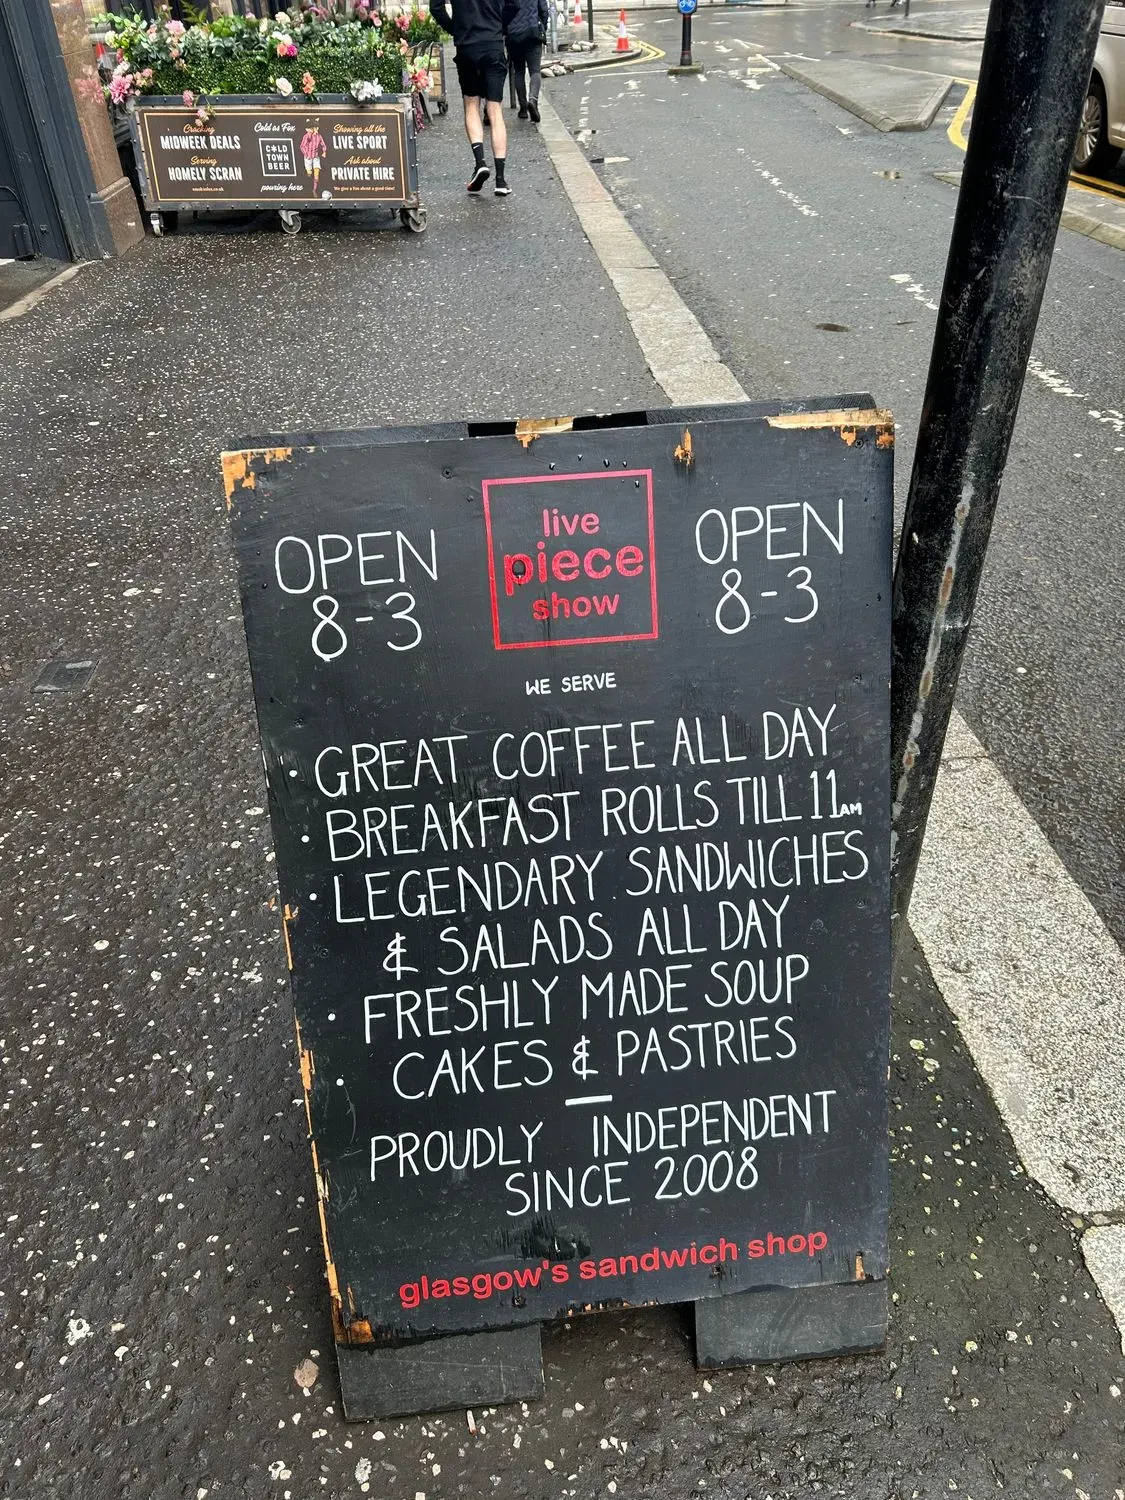 Cracking
MIDWEEK DEALS
Serving
HOMELY SCRAN
Cold as Fox
C*LD
TOWN
BEER
pouring here
Showing all the
LIVE SPORT
Ask about
PRIVATE HIRE
We give a fox about a good time!
OPEN
8-3
live
piece
show
OPEN
8-3
WE SERVE
• GREAT COFFEE ALL DAY
• BREAKFAST ROLLS TILL 11AM
• LEGENDARY SANDWICHES
& SALADS ALL DAY
• FRESHLY MADE SOUP
• CAKES & PASTRIES
—
PROUDLY INDEPENDENT
SINCE 2008
glasgow's sandwich shop